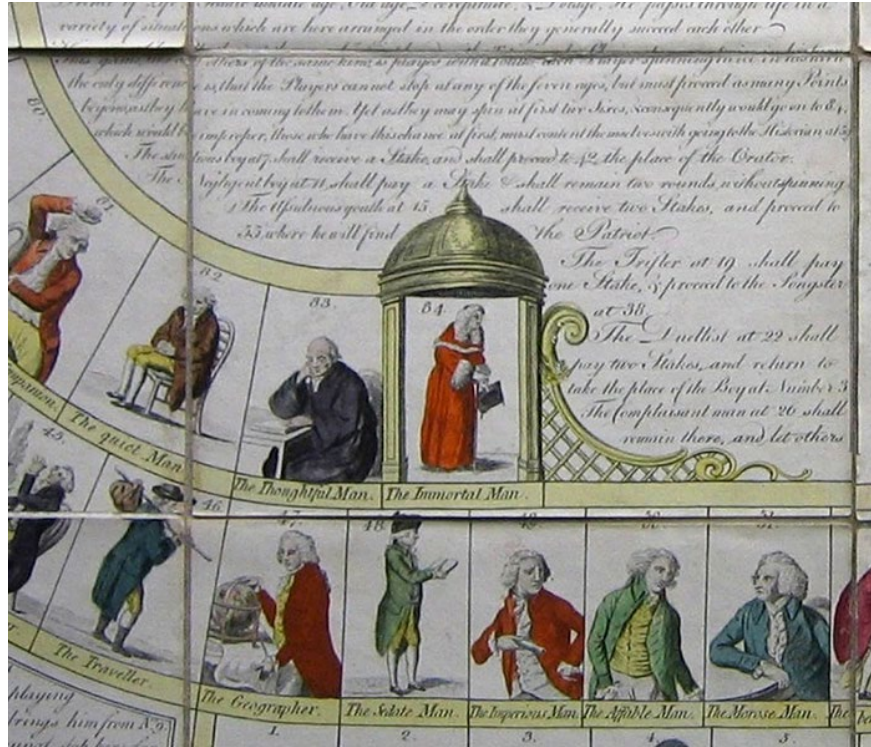 variety of situations which are here arranged in the order they generally succeed each other
the only difference is, that the Players cannot stop at any of the seven ages, but must proceed as many Points
beyond as they have in coming to them. Yet as they may spin at first two Sixes, & consequently would go on to 84,
which would be improper, those who have this chance at first, must content themselves with going to the Historian at
The studious boy at 7, shall receive a Stake, and shall proceed to 42, the place of the Orator.
The Negligent boy at 11, shall pay a Stake & shall remain two rounds, without spinning
The Assiduous youth at 15 shall receive two Stakes, and proceed to
55 where he will find the Patriot.
The Trifler at 19 shall pay
one Stake, & proceed to the Songster
at 38.
The Duellist at 22 shall
pay two Stakes, and return to
take the place of the Boy at Number 3
The Complaisant man at 26 shall
remain there, and let others
80
81
82
83.
84.
The quiet Man
The Thoughtful Man.
The Immortal Man.
45.
46.
47.
48.
49.
50.
51.
The Traveller.
The Geographer.
The Sedate Man.
The Imperious Man
The Affable Man.
The Morose Man.
The
playing
brings him from No. 9.
1.
2.
3.
4.
5.